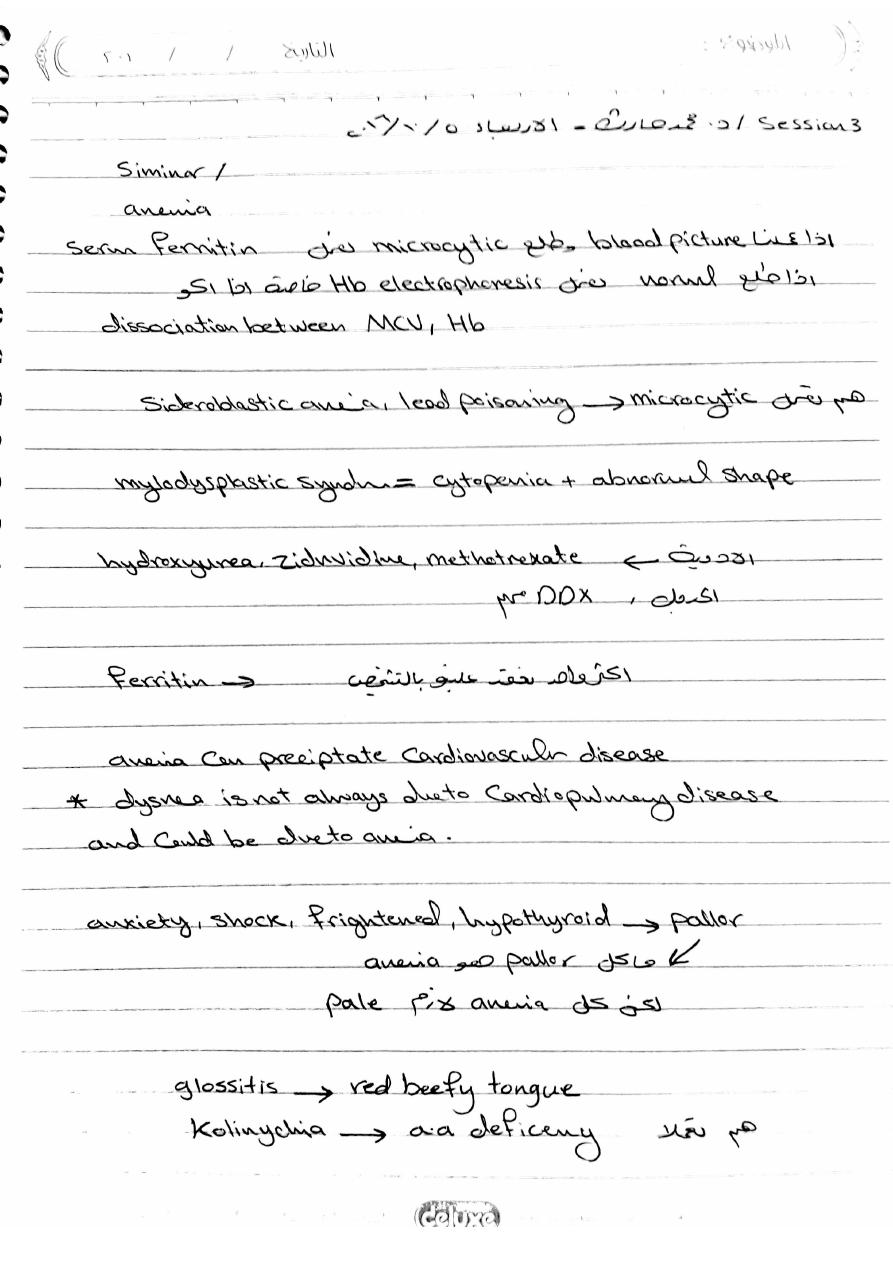 التاريخ / / ٢٠١
الموضوع :
Session 3 / د. محمد حارث - الاربعاء ٥/١٠/٢٠١٦
Siminar /
anemia
اذا عدنا blood picture وطلع microcytic نعمل serum Ferritin
اذا طلع normal نعمل Hb electrophoresis خاصة اذا اكو
dissociation between MCV, Hb
Sideroblastic anemia, lead poisoning → microcytic هم تعمل
mylodysplastic syndrm = cytopenia + abnormal shape
hydroxyurea, zidnvidine, methotrexate ← الادوية
الكحول ، DDX مهم
Ferritin → اكثر واحد نعتمد عليه بالتشخيص
anemia can preciptate Cardiovasculr disease
* dysnea is not always due to Cardiopulmonary disease
and Could be due to anemia.
anxiety, shock, frightened, hypothyroid → pallor
ماكل pallor هو anemia
لكن كل anemia لازم pale
glossitis → red beefy tongue
Kolinychia → a.a deficeny هم
deluxe